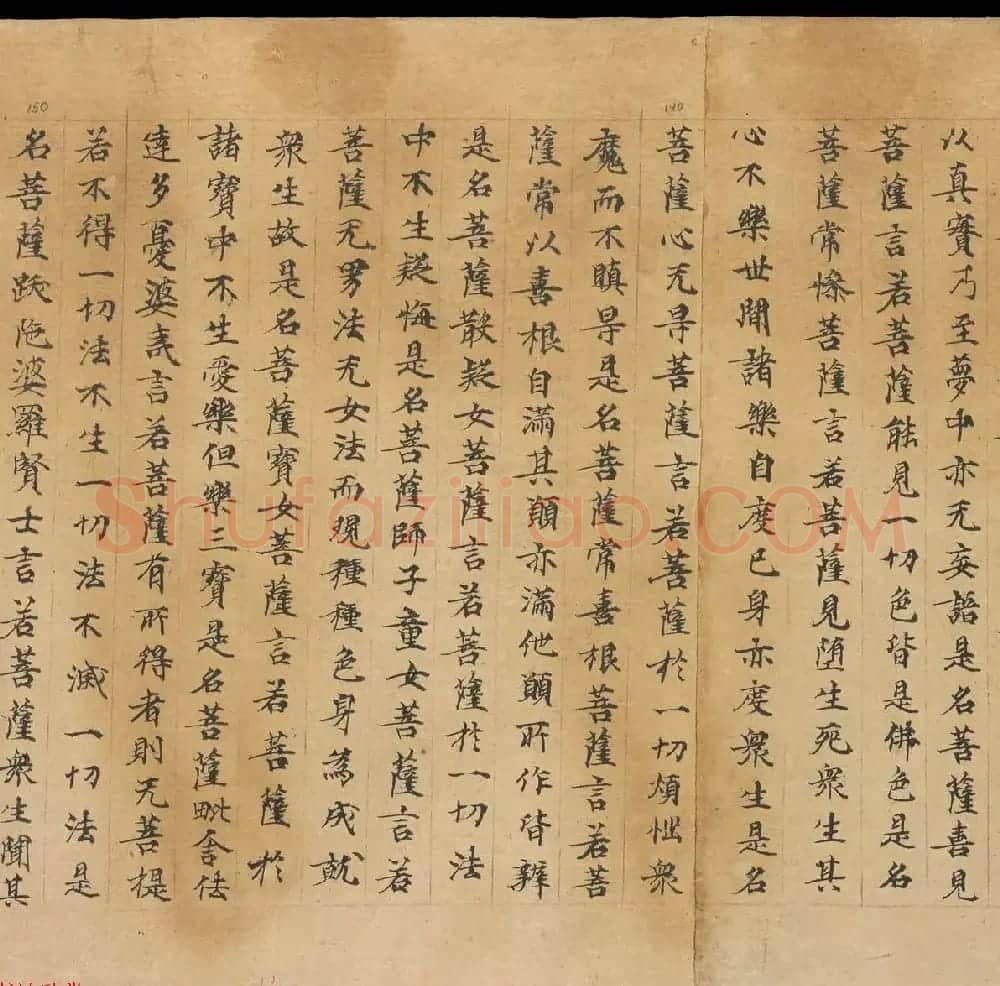 以真實乃至夢中亦无妄語是名菩薩喜見
菩薩言若菩薩能見一切色皆是佛色是名
菩薩常慘菩薩言若菩薩見堕生死衆生其
心不樂世間諸樂自度已身亦度衆生是名
菩薩心无㝵菩薩言若菩薩於一切煩惱衆
魔而不瞋㝵是名菩薩常喜根菩薩言若菩
薩常以喜根自滿其願亦滿他願所作皆辦
是名菩薩散疑女菩薩言若菩薩於一切法
中不生疑悔是名菩薩師子童女菩薩言若
菩薩无男法无女法而現種種色身為成就
衆生故是名菩薩寶女菩薩言若菩薩於
諸寶中不生愛樂但樂三寶是名菩薩毗舍佉
達多憂婆夷言若菩薩有所得者則无菩提
若不得一切法不生一切法不滅一切法是
名菩薩跋陁婆羅賢士言若菩薩衆生聞其
140
150
Shufaziliao.COM